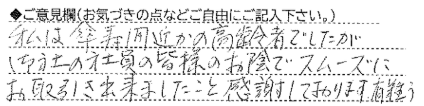 ◆ご意見欄(お気づきの点などご自由にご記入下さい。)
私は傘寿間近かの高齢者でしたが
御社の社員の皆様のお陰でスムーズに
お取引き出来ました こと感謝しております有難う